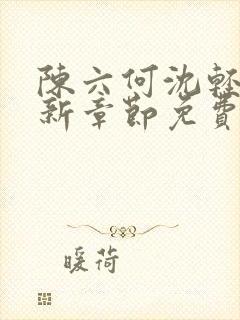 陳六何沈輕
新章節免費
暖荷